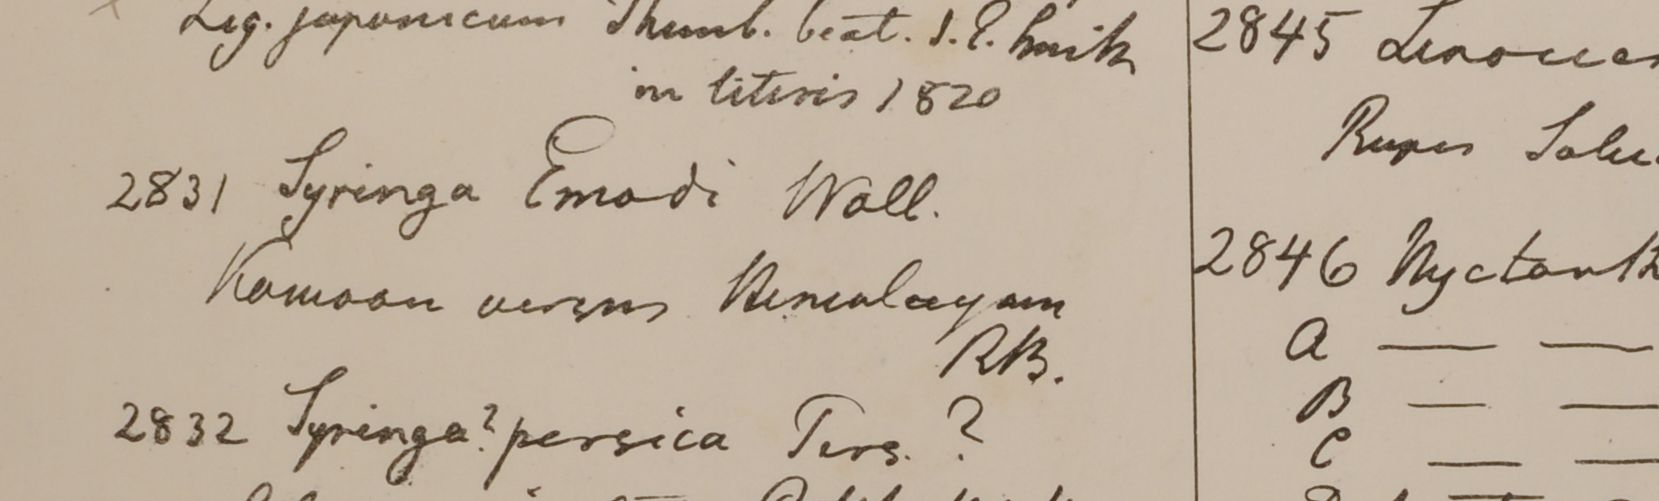 Lig. japonicum Thunb. beat. J. E. Smith
in literis 1820
2831 Syringa Emodi Wall.
Kamaon versus Himalayam
RB.
2832 Syringa? persica Pers. ?
2845 Linocier
Rupes
2846 Nyctanth
A — —
B — —
C — —